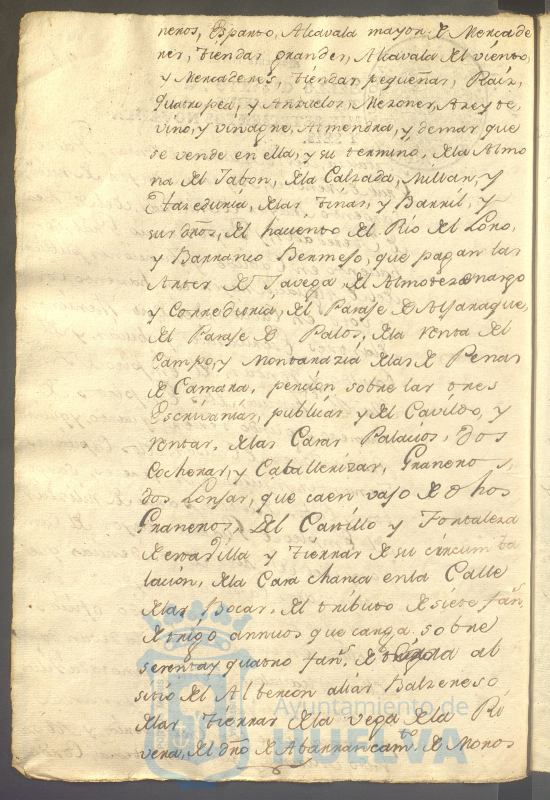 neros, Esparto, Alcavala mayor de Mercade
res, tiendas grandes, Alcavala del viento,
y Mercaderes, tiendas pequeñas, Raiz,
quatropea, y Anzuelos, Mezones, Azeyte,
vino, y vinagre, Almendra, y demas que
se vende en ella, y su termino, de la Almo
na del Jabon, de la Calzada, Millan, y
de las tinas, y Barril, y
sus dros, del haciento del Rio del Loro,
y Barranco Bermejo, que pagan las
Artes de Javega, del Almotazenazgo
y Correduria, del Paraje de
del Paraje de Palos, de la venta del
Campo, y Montarazia de las de Peñas
de Camara, pencion sobre las tres
Escrivanias, publicas y del Cavildo, y
rentas, de las Casas Palacios, Dos
Cocheras, y Cavallerizas, Graneros,
dos Lonjas, que caen vajo de dhos
Graneros, del Castillo y Fortaleza
de esta Villa y tierras de su circumba
lacion, de la Casa chanca en la Calle
de las Bocas, del tributo de siete fans.
de trigo annuos que carga sobre
sesenta y quatro fans. de al
sitio del Alberion alias Balzeneso
de las tierras de la vega de la Ri
vera, del dro de Abarrancamto. de Moros
Ayuntamiento de
HUELVA